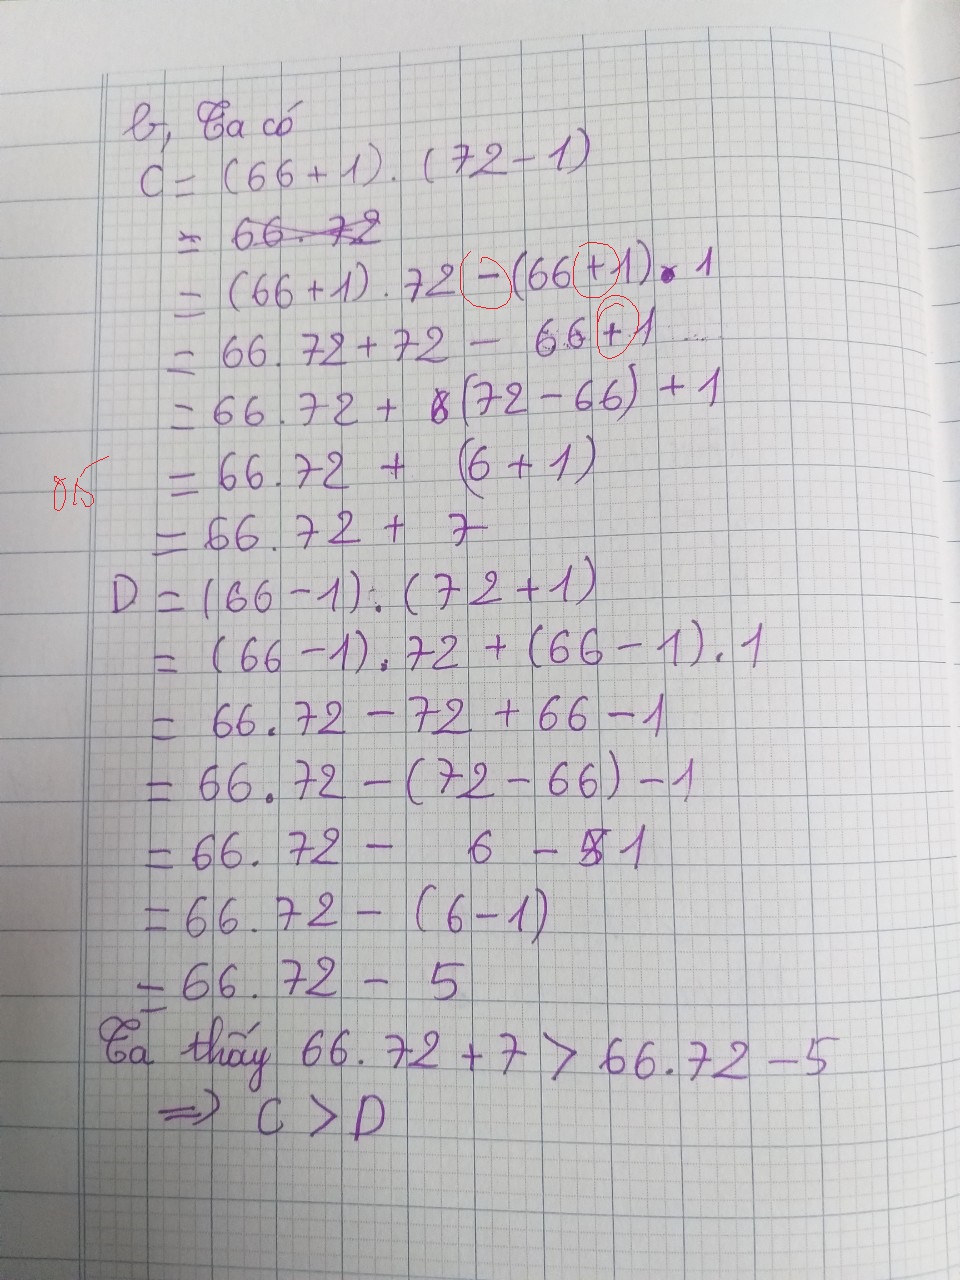 b, Ta có
C = (66 + 1) . (72 - 1)
= 66 . 72
= (66 + 1) . 72 - (66 + 1) . 1
= 66 . 72 + 72 - 66 + 1
= 66 . 72 + (72 - 66) + 1
= 66 . 72 + (6 + 1)
= 66 . 72 + 7
D = (66 - 1) . (72 + 1)
= (66 - 1) . 72 + (66 - 1) . 1
= 66 . 72 - 72 + 66 - 1
= 66 . 72 - (72 - 66) - 1
= 66 . 72 - 6 - 1
= 66 . 72 - (6 - 1)
= 66 . 72 - 5
Ta thấy 66 . 72 + 7 > 66 . 72 - 5
=> C > D